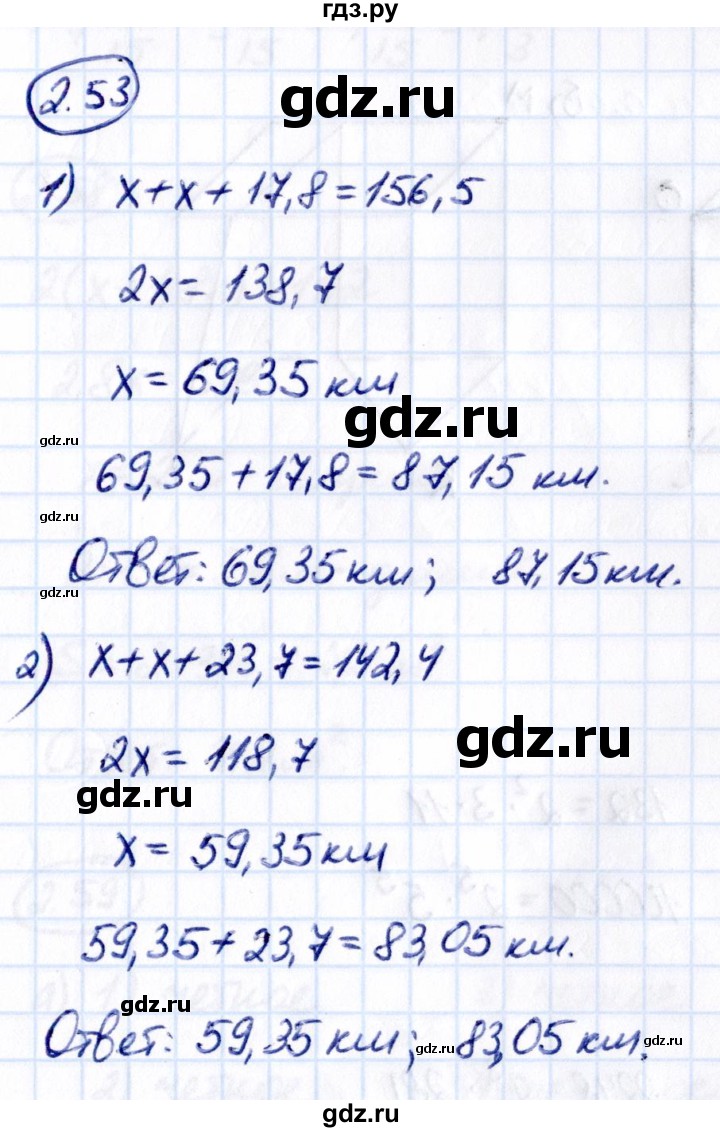 гдз.ру
2.53
gdz.ru
1) x+x+17,8=156,5
2x=138,7
x=69,35 км
gdz.ru
gdz.ru
69,35+17,8=87,15 км.
gdz.ru
Ответ: 69,35 км; 87,15 км.
gdz.ru
2) x+x+23,7=142,4
gdz.ru
2x=118,7
gdz.ru
x=59,35 км
59,35+23,7=83,05 км.
gdz.ru
Ответ: 59,35 км; 83,05 км.
gdz.ru
gdz.ru
gdz.ru